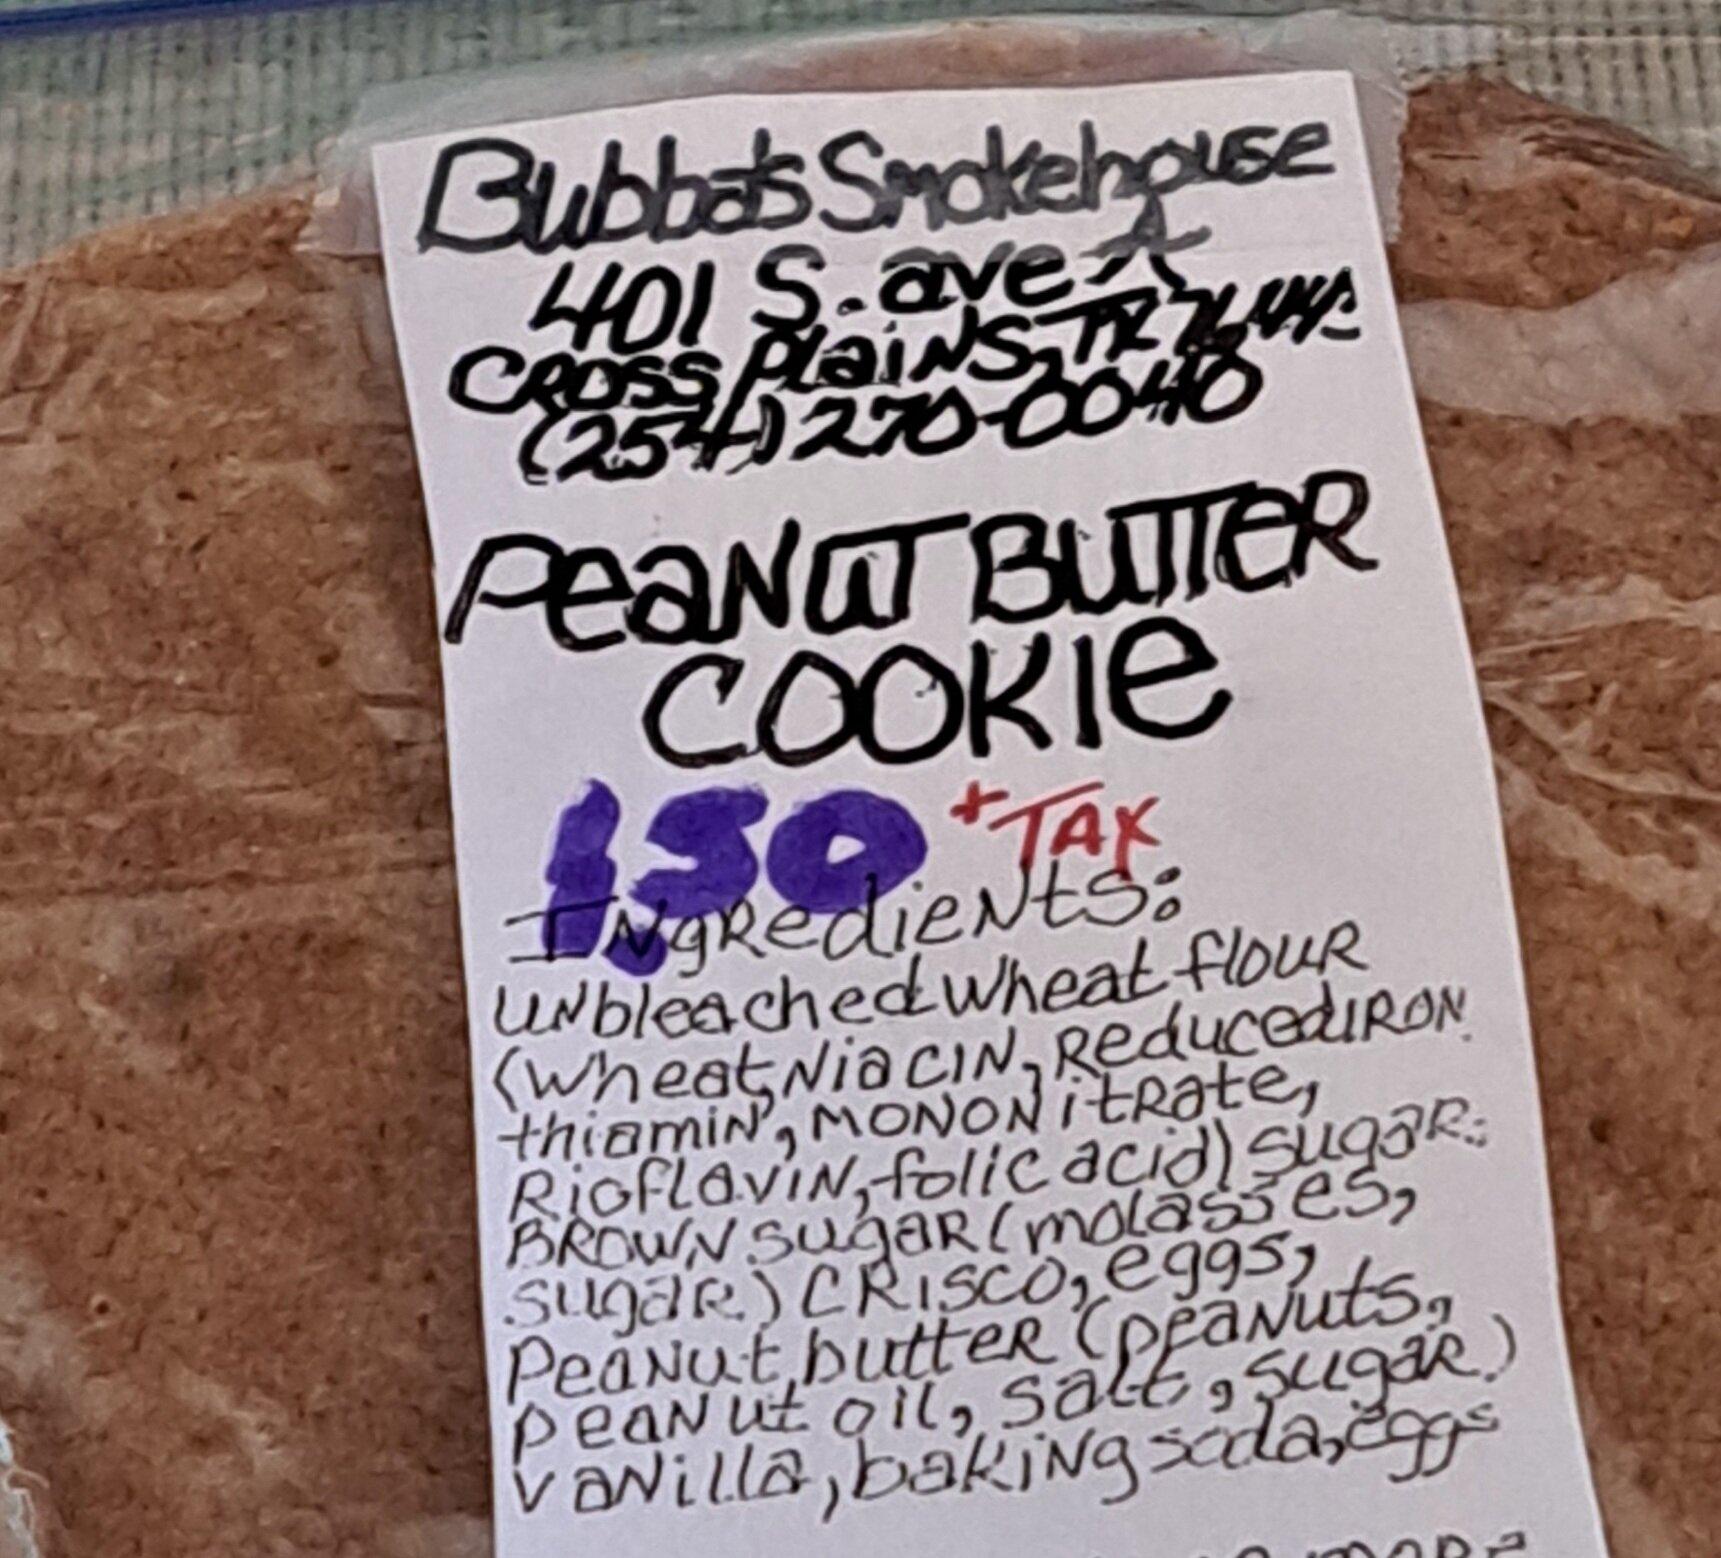 Bubba's Smokehouse
401 S. ave A
CROSS PlaiNS, TX 76443
(254) 270-0040
PeaNUT BUTTeR
COOKIe
1.50 + TAX
INgRedieNts:
UNbleached wheat flOUR
(wheat, NiaCIN, ReducedIRON
thiamiN, MONONitRate,
RioflaviN, folic acid) sugaR.
BROWN sugaR (molasses,
sugaR) CRISCO, eggs,
PeaNut butteR (peaNuts,
peaNut oil, salt, sugaR)
vaNilla, bakiNg soda, eggs